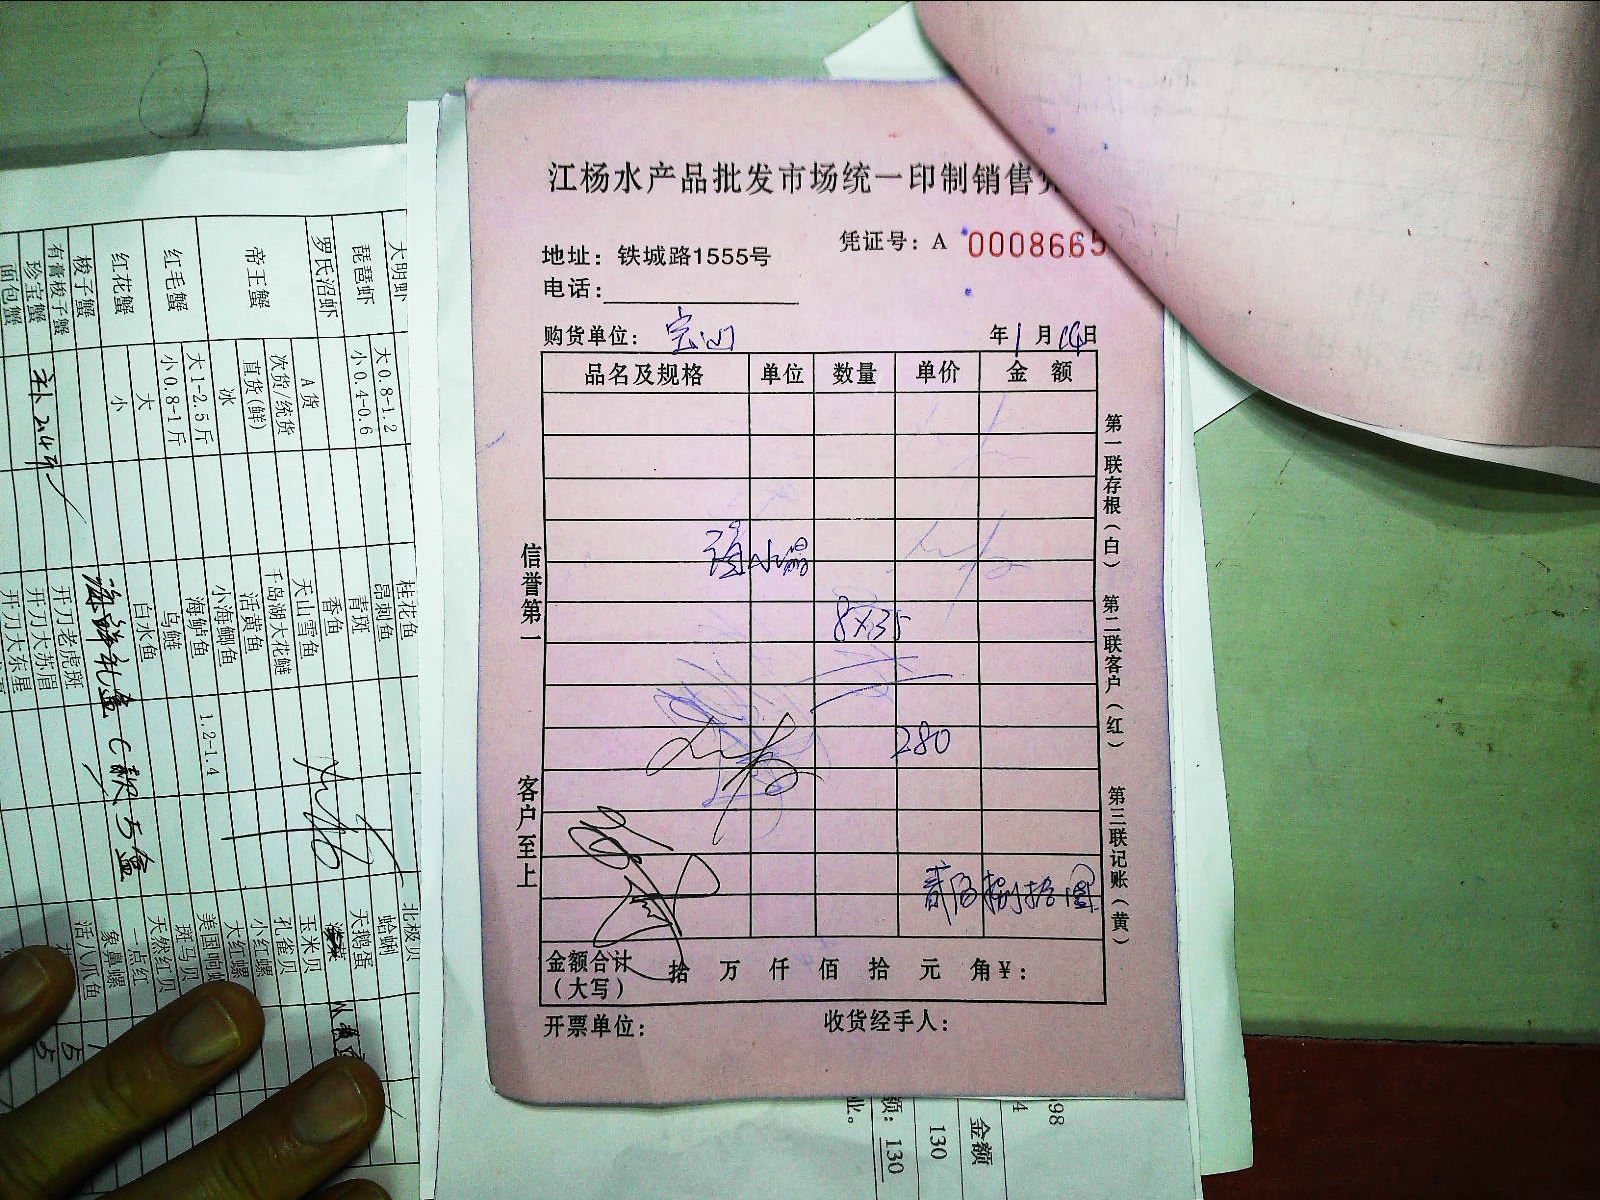 江杨水产品批发市场统一印制销售
凭证号：A 0008665
地址：铁城路1555号
电话：
购货单位：宝山 年1月14日
品名及规格 单位 数量 单价 金 额
8×35
280
贰佰捌拾圆
金额合计（大写） 拾 万 仟 佰 拾 元 角￥：
开票单位： 收货经手人：
信誉第一 客户至上
第一联存根（白） 第二联客户（红） 第三联记账（黄）
大明虾 大0.8-1.2 桂花鱼 北极贝
琵琶虾 小0.4-0.6 昂刺鱼 蛤蜊
青斑 天鹅蛋
罗氏沼虾 A货 香鱼
次货/统货 天山雪鱼 玉米贝
帝王蟹 直货(鲜) 千岛湖大花鲢 孔雀贝
冰 活黄鱼 小红螺
大1-2.5斤 小海鲫鱼 大红螺
红毛蟹 小0.8-1斤 海鲈鱼 1.2-1.4 美国响螺
大 乌鲢 斑马贝
红花蟹 小 白水鱼 天然红贝
海鲜礼盒C款5盒 一点红
梭子蟹 象鼻螺
有膏梭子蟹 开刀老虎斑 活八爪鱼
珍宝蟹 开刀大苏眉
面包蟹 开刀大东星
98
金额
130
额：130
业。